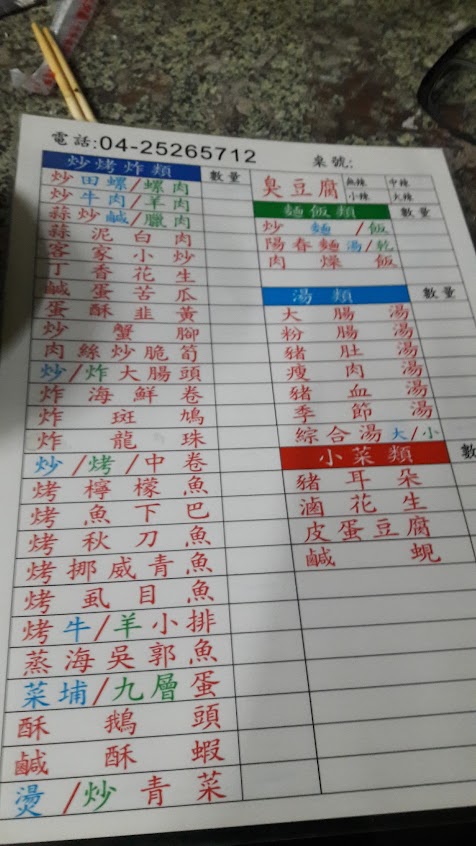 電話:04-25265712
桌號:
炒烤炸類 數量
炒田螺/螺肉
炒牛肉/羊肉
蒜炒鹹/臘肉
蒜泥白肉
客家小炒
丁香花生
鹹蛋苦瓜
蛋酥韭黃
炒蟹腳
肉絲炒脆筍
炒/炸大腸頭
炸海鮮卷
炸斑鳩
炸龍珠
炒/烤/中卷
烤檸檬魚
烤魚下巴
烤秋刀魚
烤挪威青魚
烤虱目魚
烤牛/羊小排
蒸海吳郭魚
菜埔/九層蛋
酥鵝頭
鹹酥蝦
燙/炒青菜
臭豆腐 無辣 中辣
小辣 大辣
麵飯類 數量
炒麵/飯
陽春麵湯/乾
肉燥飯
湯類 數量
大腸湯
粉腸湯
豬肚湯
瘦肉湯
豬血湯
季節湯
綜合湯大/小
小菜類 數
豬耳朵
滷花生
皮蛋豆腐
鹹蜆